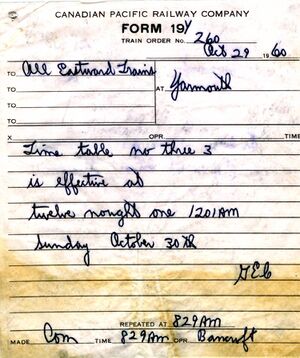 CANADIAN PACIFIC RAILWAY COMPANY
FORM 19Y
TRAIN ORDER NO. 260
Oct 29 1960
TO All Eastward Trains
TO AT Yarmouth
TO
TO
X OPR. TIME
Time table no three 3
is effective at
twelve nought one 1201AM
Sunday October 30th
GEC
REPEATED AT 829AM
MADE Com TIME 829AM OPR. Bancroft